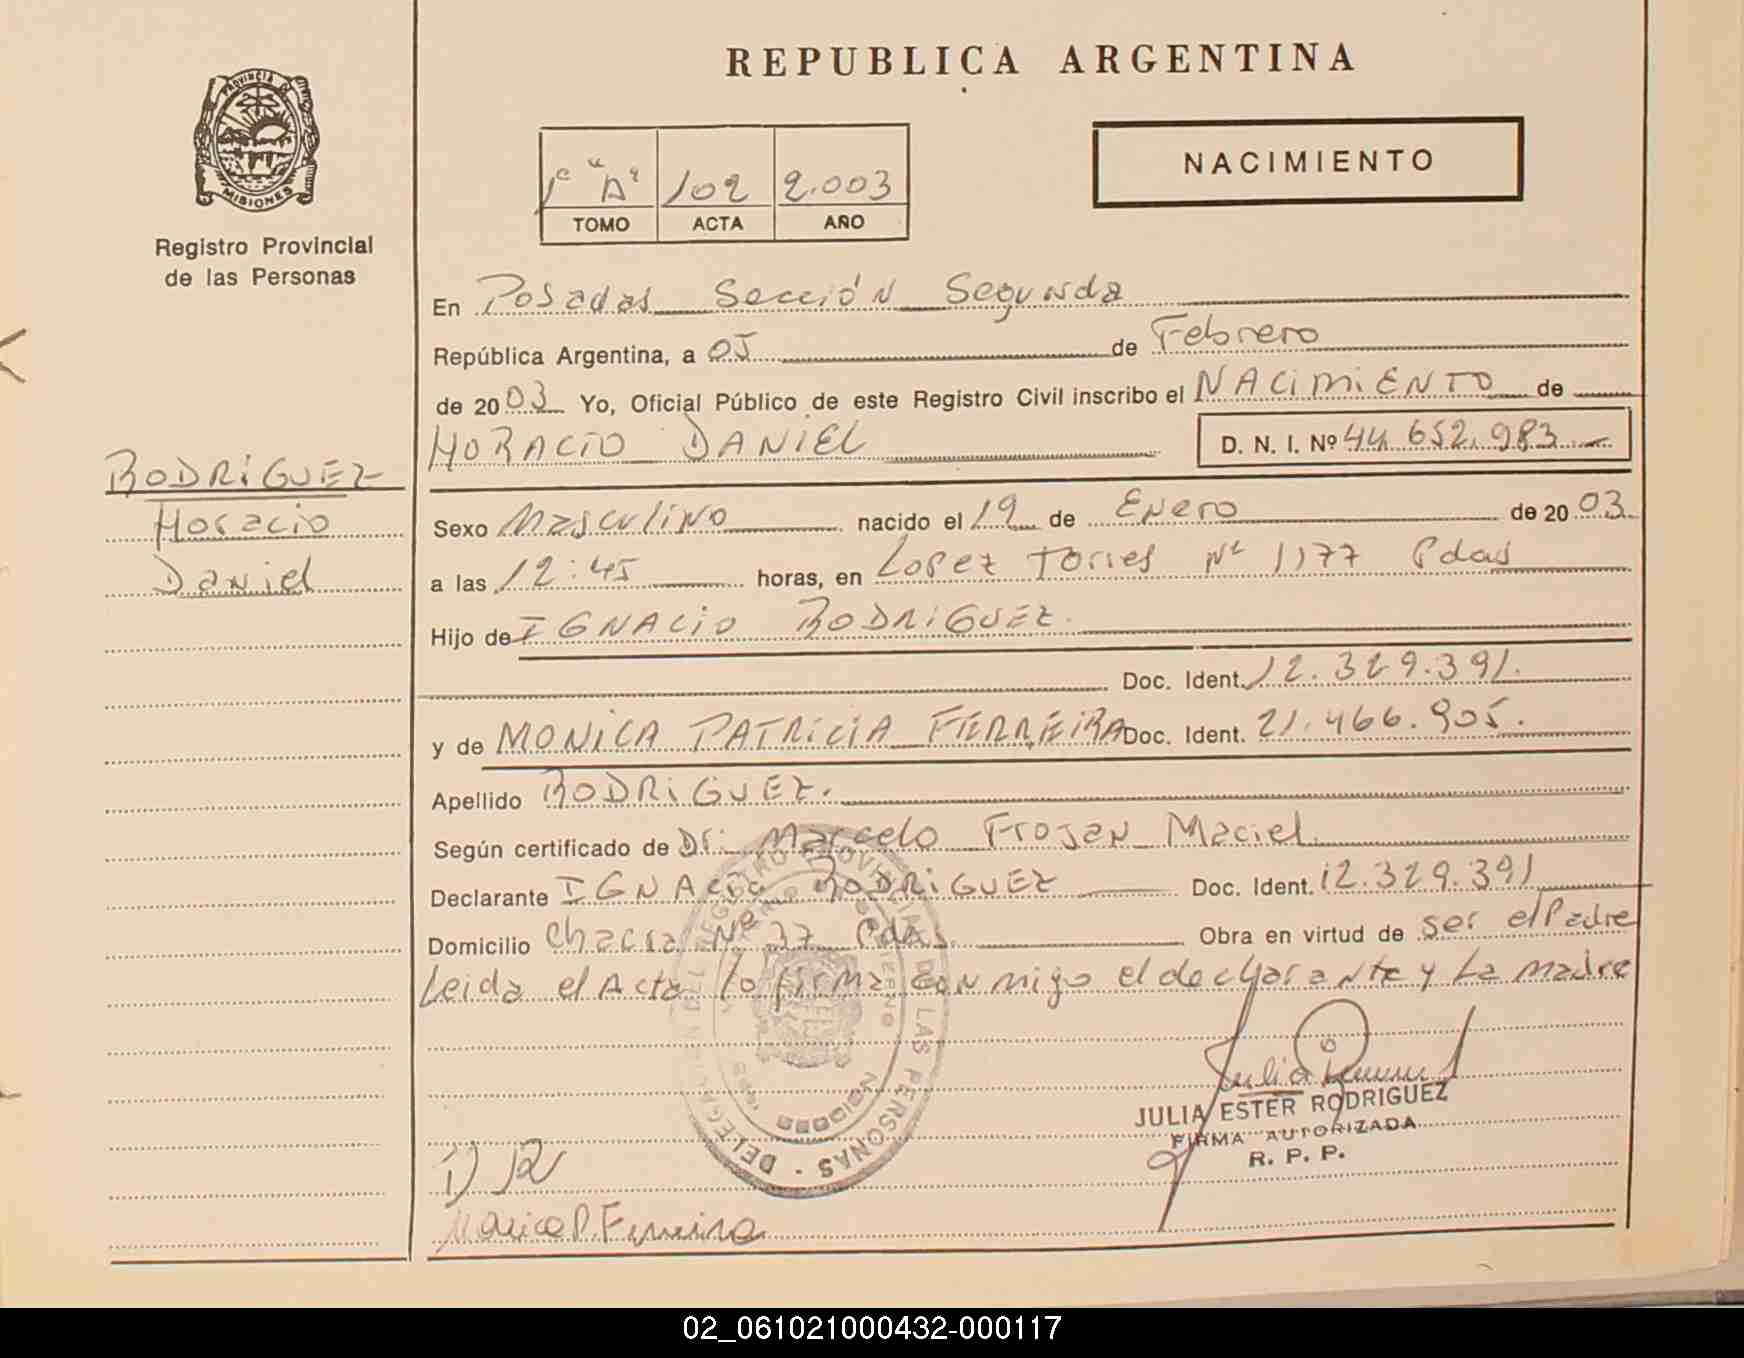 REPUBLICA ARGENTINA
PROVINCIA DE
MISIONES
Registro Provincial
de las Personas
1º "A" 102 2.003
TOMO ACTA AÑO
NACIMIENTO
En Posadas Sección Segunda
República Argentina, a 05 de Febrero
de 2003 Yo, Oficial Público de este Registro Civil inscribo el NACIMIENTO de
HORACIO DANIEL D. N. I. Nº 44.652.983
RODRIGUEZ
Horacio
Daniel
Sexo Masculino nacido el 19 de Enero de 2003
a las 12:45 horas, en Lopez Torres Nº 1177 Pdas
Hijo de IGNACIO RODRIGUEZ.
Doc. Ident. 12.329.391.
y de MONICA PATRICIA FERREIRA Doc. Ident. 21.466.905.
Apellido RODRIGUEZ.
Según certificado de Dr. Marcelo Trojan Maciel
Declarante IGNACIO RODRIGUEZ Doc. Ident. 12.329.391
Domicilio Chacra Nº 37 Pdas. Obra en virtud de ser el Padre
Leida el Acta lo firma con migo el declarante y La madre
REGISTRO PROVINCIAL DE LAS PERSONAS - DELEGACION DEL
MISIONES
JULIA ESTER RODRIGUEZ
FIRMA AUTORIZADA
R. P. P.
Monica P. Ferreira
02_061021000432-000117